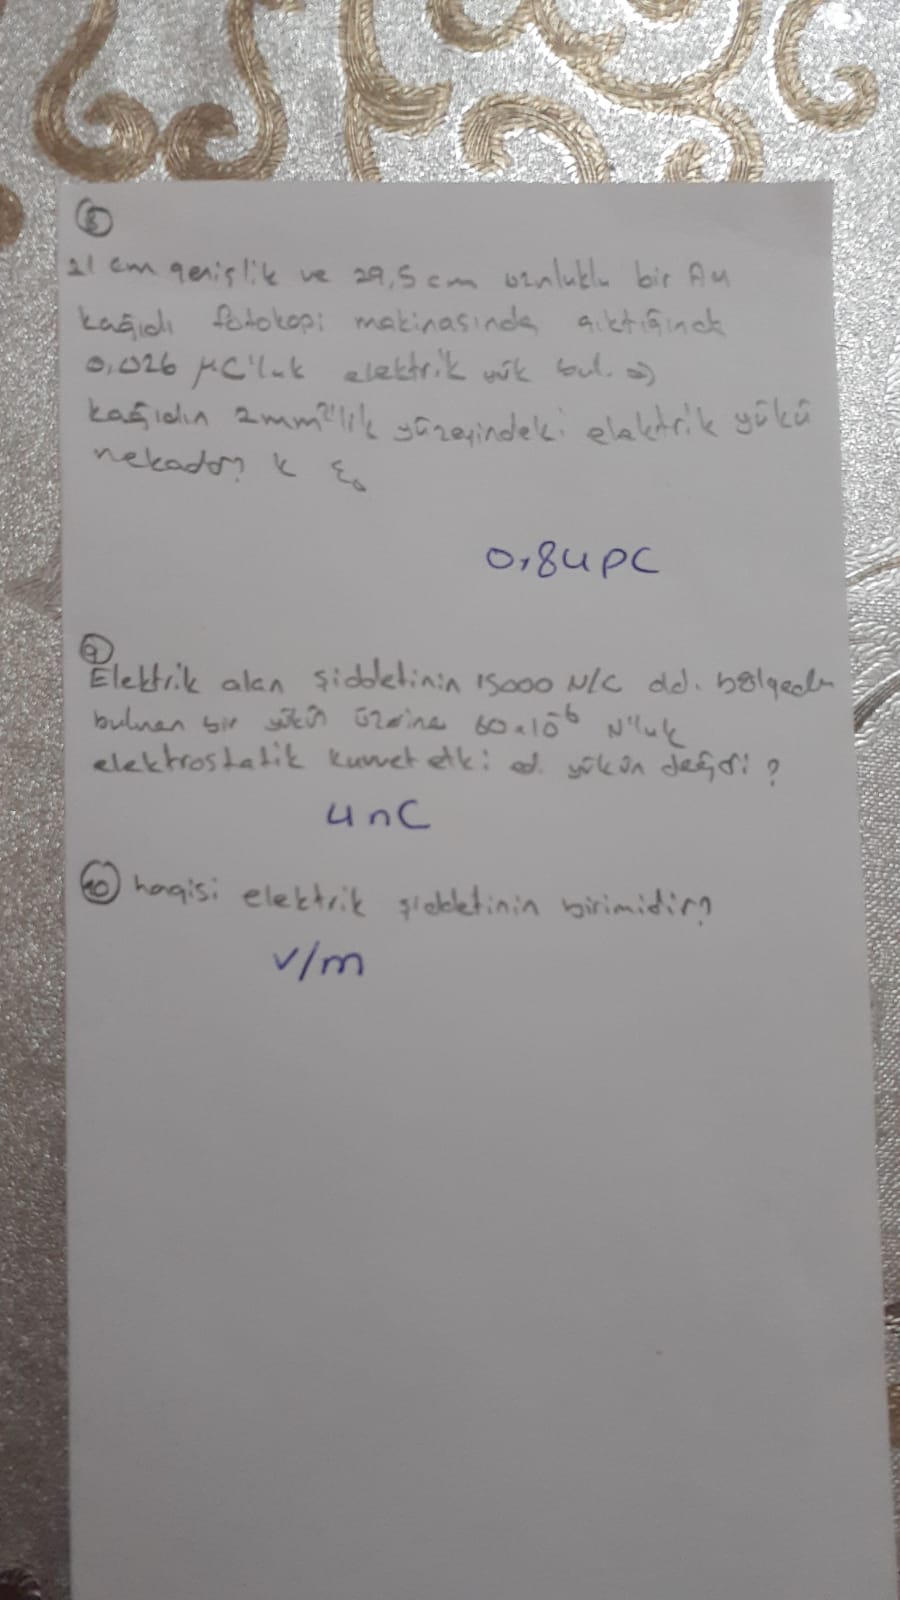 8
21 cm genişlik ve 29,5 cm uzunluklu bir A4
kağıdı fotokopi makinasında çıktığında
0,026 μC'luk elektrik yük bul.
kağıdın 2mm²'lik yüzeyindeki elektrik yükü
nekadar? k ε₀
0,84 pC
9
Elektrik alan şiddetinin 15000 N/C old. bölgede
bulunan bir yükün üzerine 60x10⁻⁶ N'luk
elektrostatik kuvvet etki ed. yükün değeri ?
4nC
10 hangisi elektrik şiddetinin birimidir?
V/m